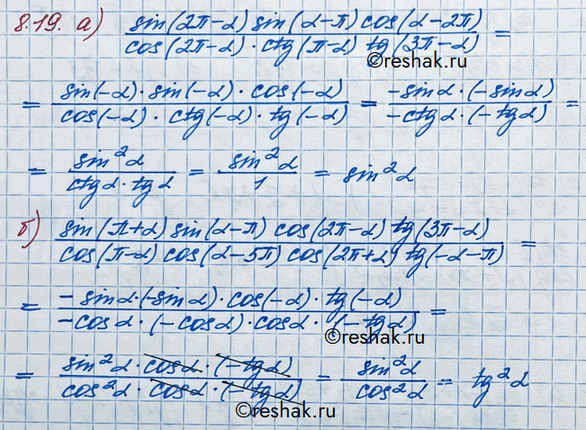 8.19. а) sin(2π-α) sin(α-π) cos(α-2π) / cos(2π-α) · ctg(π-α) tg(3π-α) =
= sin(-α) · sin(-α) · cos(-α) / cos(-α) · ctg(-α) · tg(-α) = -sinα · (-sinα) / -ctgα · (-tgα) =
= sin²α / ctgα · tgα = sin²α / 1 = sin²α
б) sin(π+α) sin(α-π) cos(2π-α) tg(3π-α) / cos(π-α) cos(α-5π) cos(2π+α) tg(-α-π) =
= -sinα·(-sinα) · cos(-α) · tg(-α) / -cosα · (-cosα) · cosα · (-tgα) =
= sin²α · cosα · (-tgα) / cos²α · cosα · (-tgα) = sin²α / cos²α = tg²α
©reshak.ru
©reshak.ru
©reshak.ru